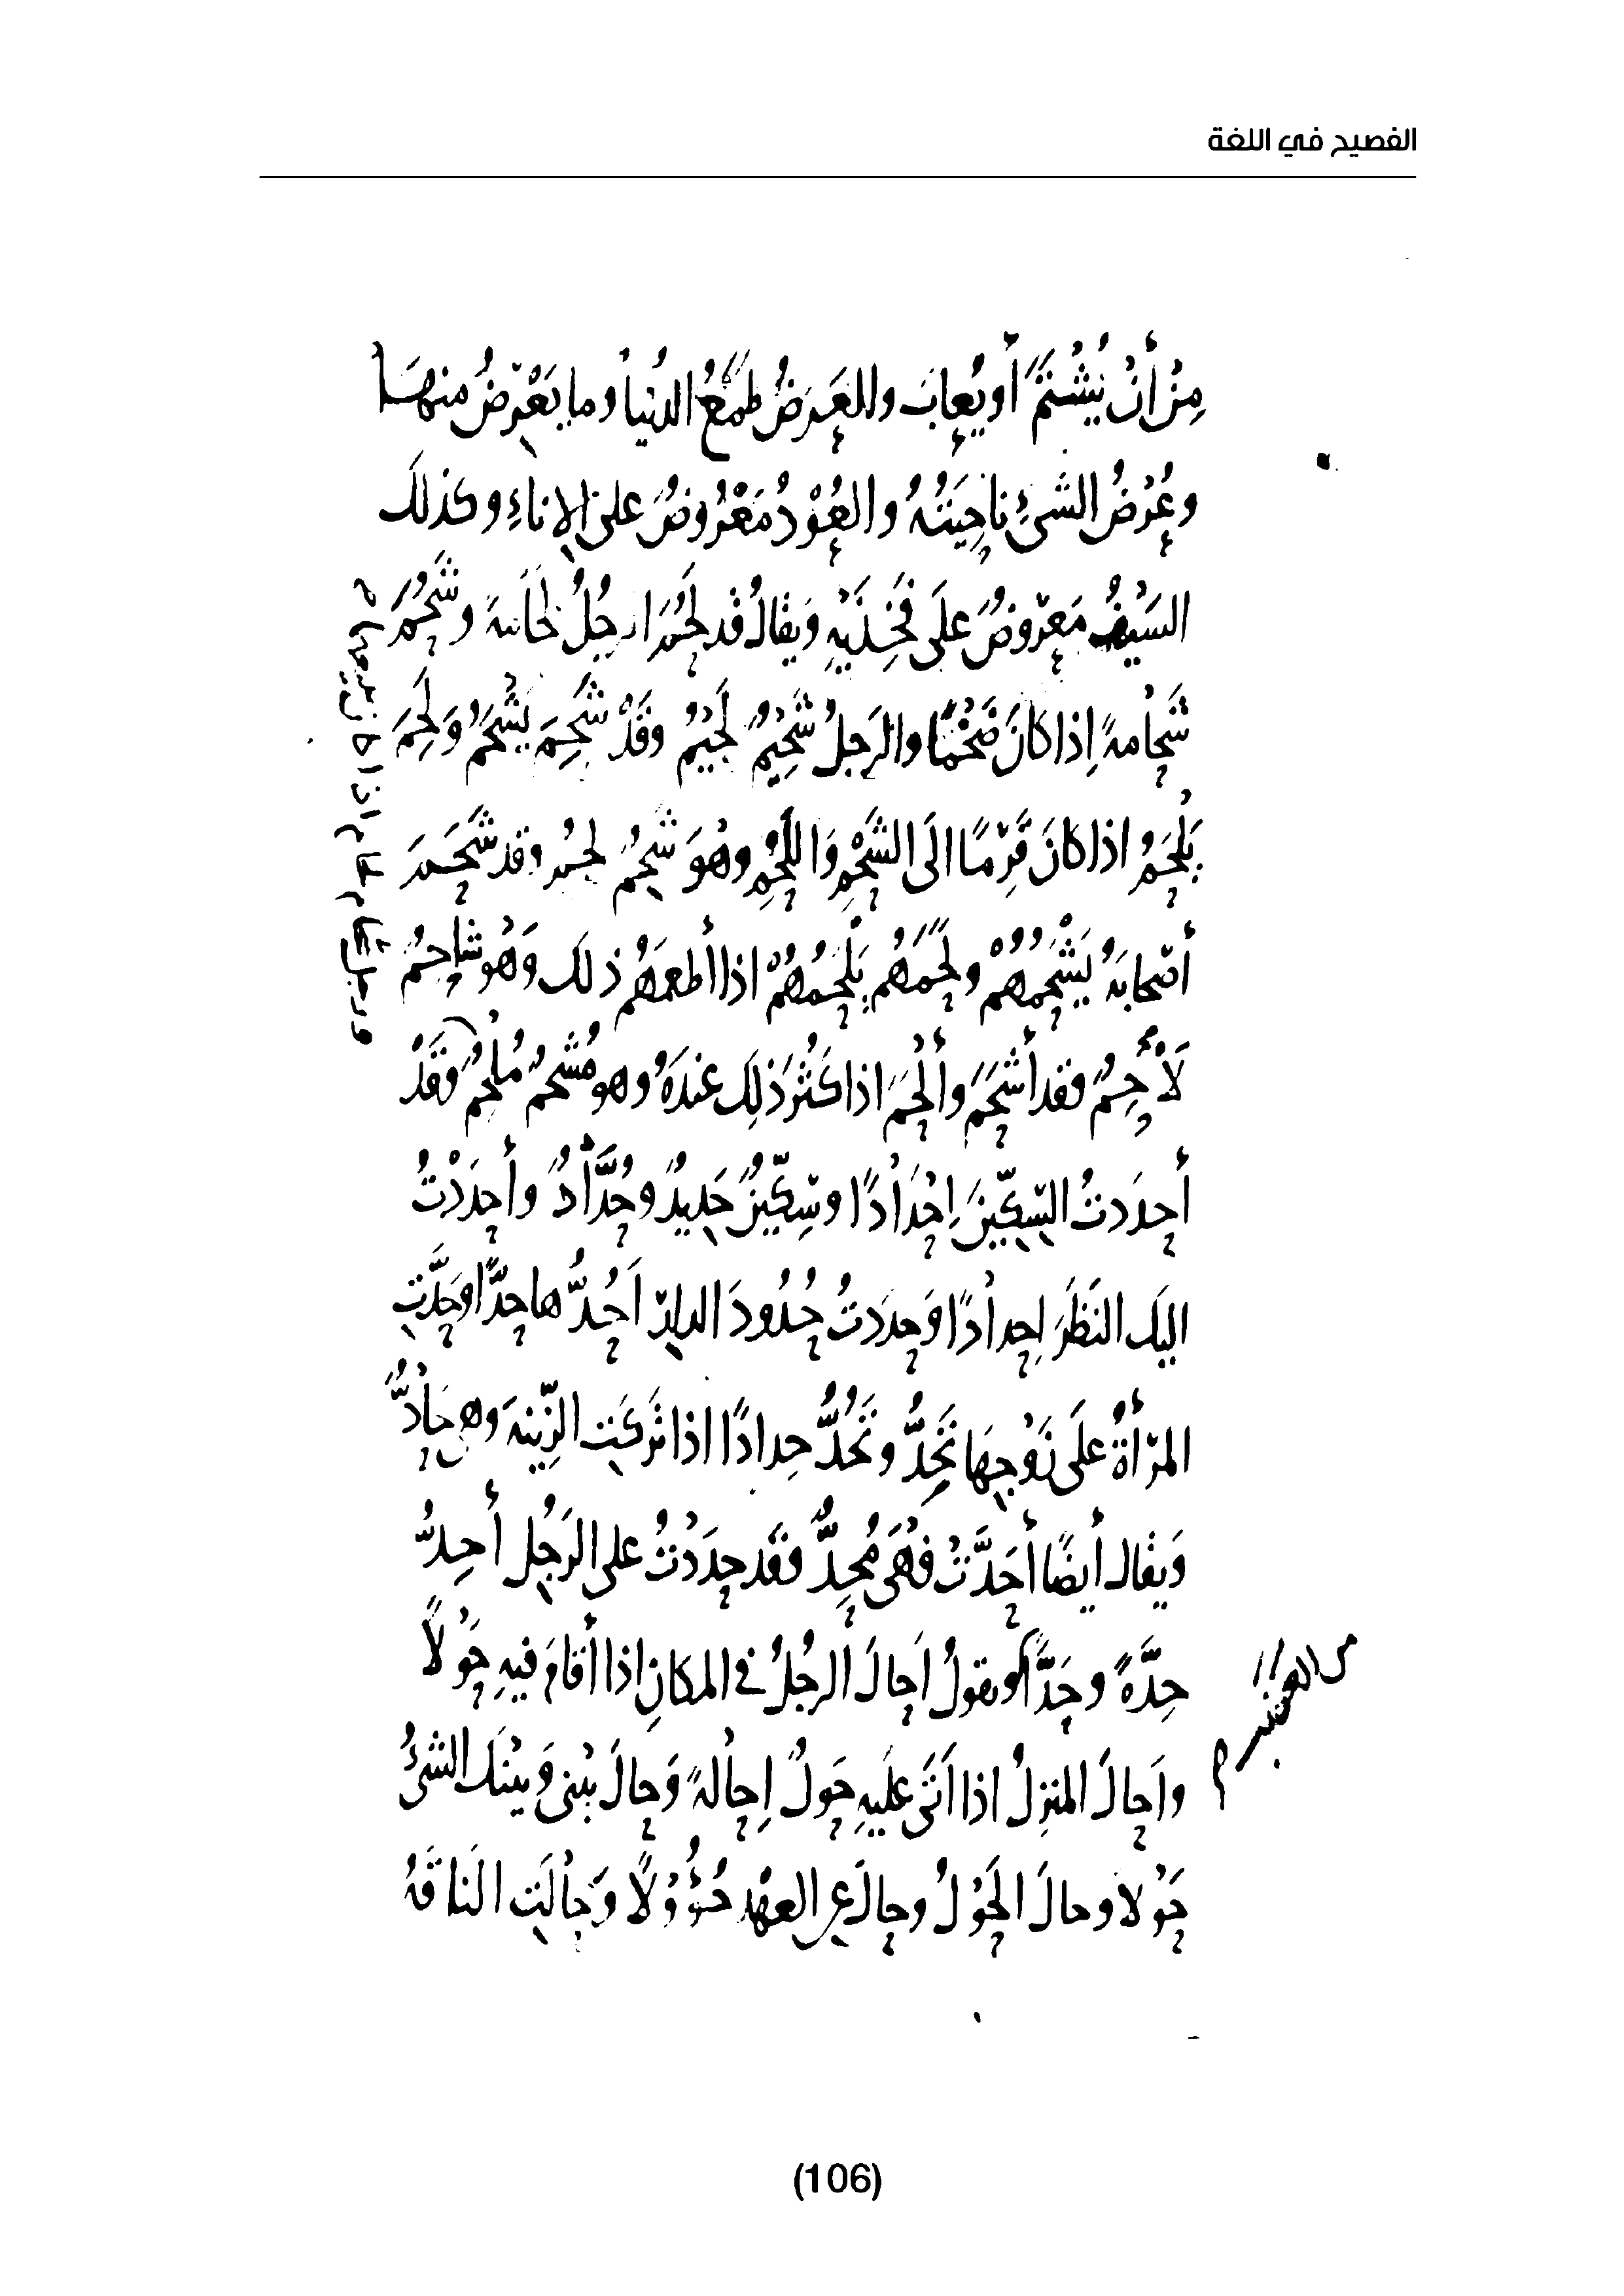 الفصيح في اللغة
مِنْ أَنْ يُشْتَمَ أو يُعابَ والعَرَضُ طَمَعُ الدُنيا وما يَعْرِضُ منهَا
وعُرْضُ الشيءِ ناحِيَتُهُ والعُوْدُ مَعْرُوضٌ على الإناءِ وكذلك
السَيْفُ مَعروضٌ عَلَى فَخِذَيْهِ ويقالُ قد لَحُمَ الرجُلُ لحَامةً وشَحُمَ
شَحامةً إذا كانَ ضَخْمًا والرَجلُ شَحِيْمٌ لَحِيْمٌ وقَدْ شَحِمَ يَشْحَمُ وَلَحِمَ
يَلْحَمُ اذا كانَ قَرِمًا الَى الشَّحْمِ وَاللَّحْمِ وهُوَ شَحِمٌ لَحِمٌ وقد شَحَمَ
أصْحابَهُ يَشْحَمُهُمْ ولَحَمَهُم يَلْحَمُهُمْ اذا أطعمَهُم ذلك وَهُو شاحِمٌ
لَاْحِمٌ فقد أشْحَمَ وأَلْحَمَ اذا كَثُرَ ذلِك عندَهُ وهو مُشْحِمٌ مُلْحِمٌ وقَدْ
أحدَدتُ السِكّينَ اِحْدَادًا وسِكّينٌ حَديدٌ وحُدَّادٌ وأحدَدْتُ
اليك النَظَرَ اِحدادًا وَحدَدتُ حُدُودَ الدارِ اَحُدُّها حدًّا وحَدَّتِ
المرْأةُ علَى زَوْجِهَا تَحِدُّ وتَحُدُّ حِدادًا اذا تَركَتِ الزّينةَ وهي حَادٌّ
وَيقال أيضًا أحَدَّتْ فهْىَ مُحِدٌّ وقَد حدَدْتُ على الرَجُلِ أحِدُّ
حِدَّةً وحَدًّا وتقولُ اَحالَ الرجُلُ في المكانِ اذا أقامَ فيهِ حَوْلًا
واَحالَ المنزِلُ اذا اَتَى عَليهِ حَولٌ إحالةً وَحالَ بيْنى وَبيْنَك الشىْءُ
حَوْلا وحالَ الحَوْلُ وحالَ عن العهْدِ حُؤُوْلًا وَحَالَتِ النَاقَةُ
(106)